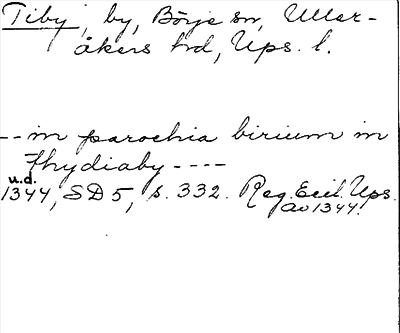 Tiby, by, Börje sn, Uller-
åkers hd, Ups. l.
-- in parochia birium in
thydiaby ----
u.d.
1344, SD 5, s. 332. Reg. Eccl. Ups.
av 1344.